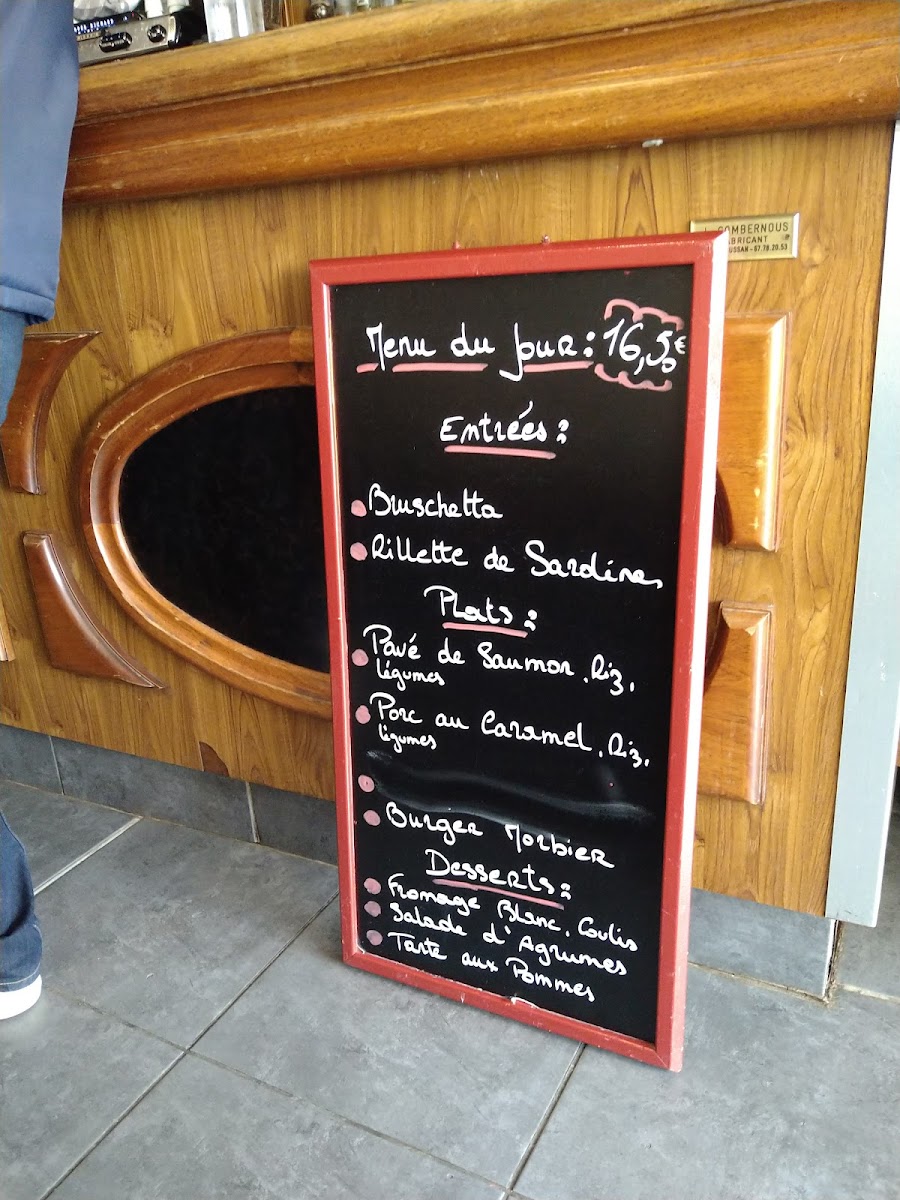 Menu du jour : 16,50€
Entrées :
Bruschetta
Rillette de Sardines
Plats :
Pavé de Saumon, Riz,
légumes
Porc au Caramel, Riz,
légumes
Burger Morbier
Desserts :
Fromage Blanc, Coulis
Salade d'Agrumes
Tarte aux Pommes
COMBERNOUS
FABRICANT
67.78.20.53